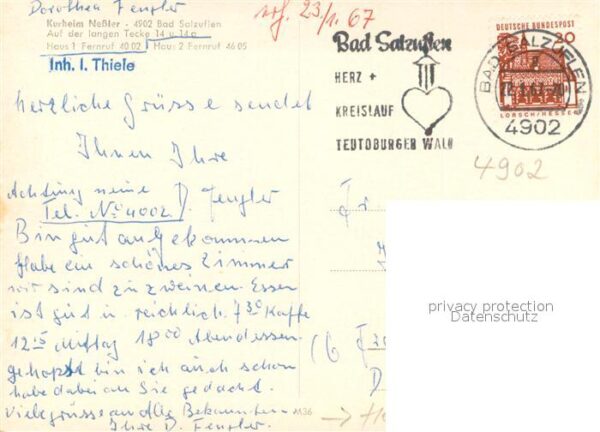 Dorothea Fengler
Kurheim Neßler - 4902 Bad Salzuflen
Auf der langen Tecke 14 u. 14a
Haus 1 Fernruf 40 02 Haus 2 Fernruf 46 05
Inh. I. Thiele
23/1. 67
Bad Salzuflen
HERZ +
KREISLAUF
TEUTOBURGER WALD
DEUTSCHE BUNDESPOST
20
LORSCH/HESSEN
BAD SALZUFLEN
4902
4902
herzliche Grüsse sendet
Ihnen Ihre
D. Fengler
Achtung meine
Tel. No 4002
Bin gut angekommen
habe ein schönes Zimmer
wir sind zu zweinen Essen
ist gut u reichlich. 7 30 Kaffe
12 15 Mittag 18 00 Abendessen
gehopst bin ich auch schon
habe dabei an Sie gedacht.
Viele grüsse an alle Bekannten
Ihre D. Fengler.
M36
privacy protection
Datenschutz